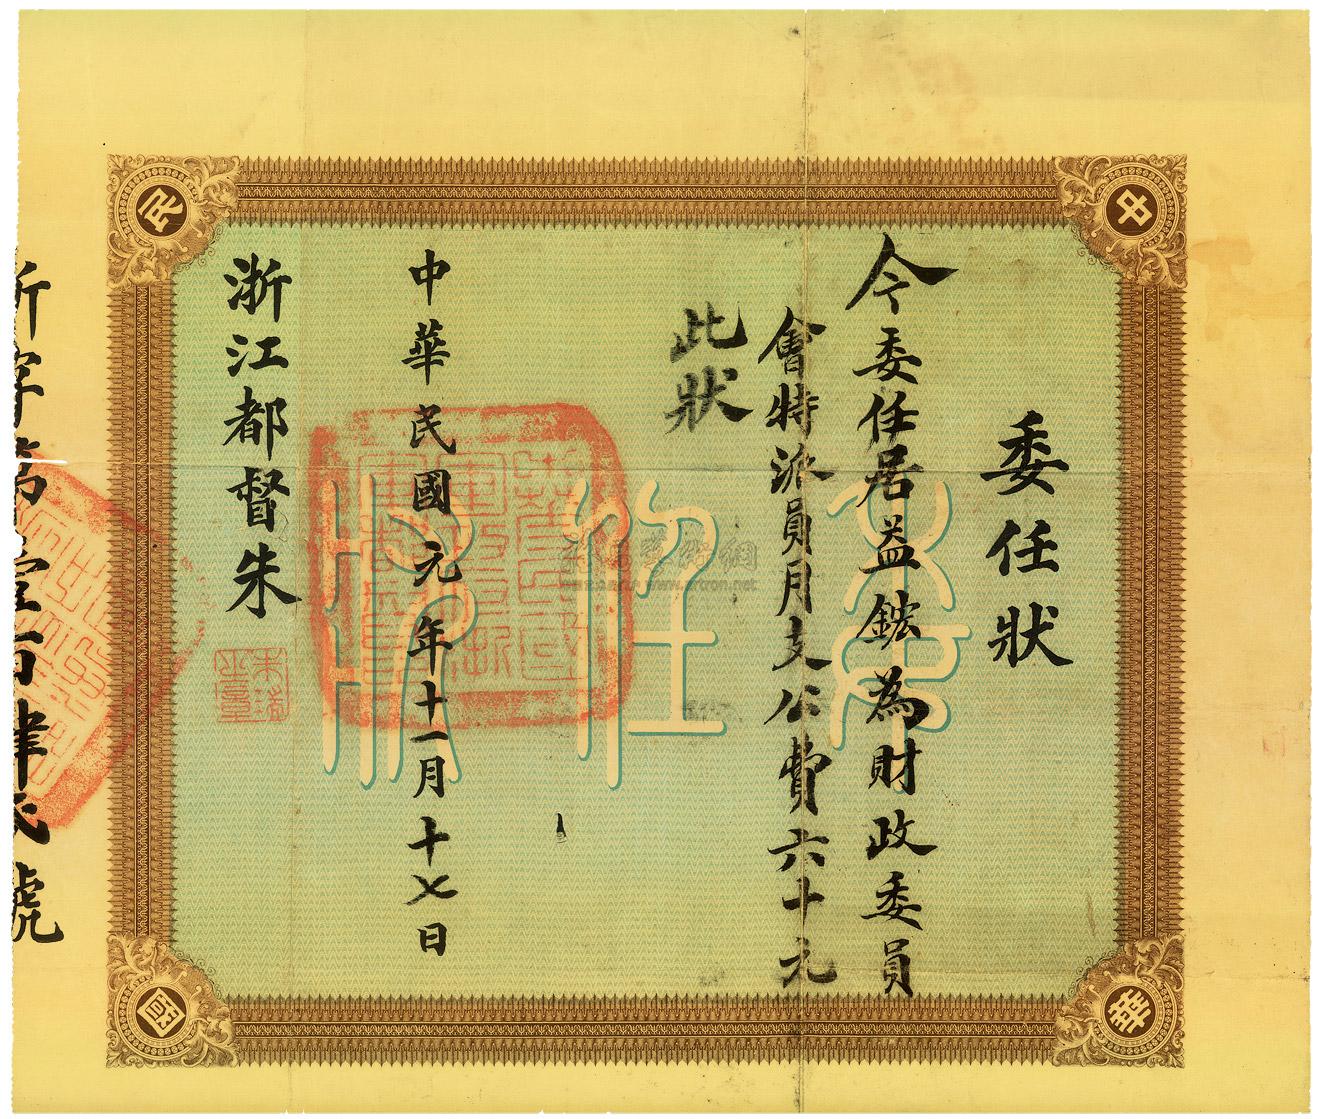 委任狀
今委任居益鋐為財政委員
會特派員月支公費六十元
此狀
中華民國元年十一月十七日
浙江都督朱
朱瑞之章
浙字第壹百肆號
委任狀
中華民國